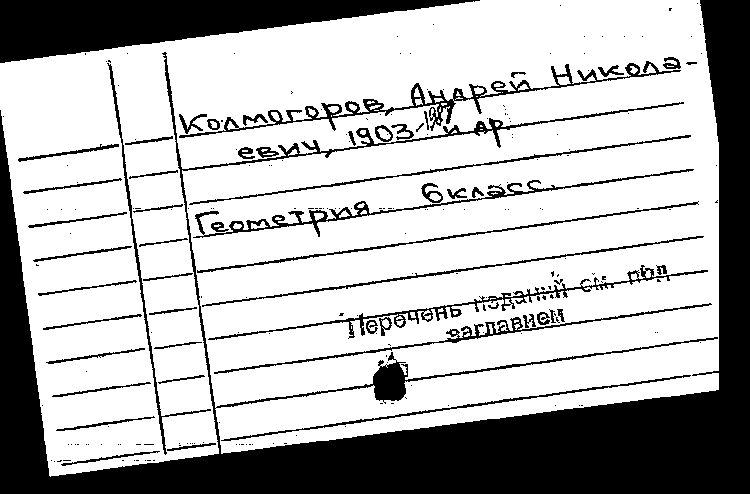 Колмогоров, Андрей Никола-
евич, 1903-1987 и др.
Геометрия 6 класс.
Перечень изданий см. под
заглавием